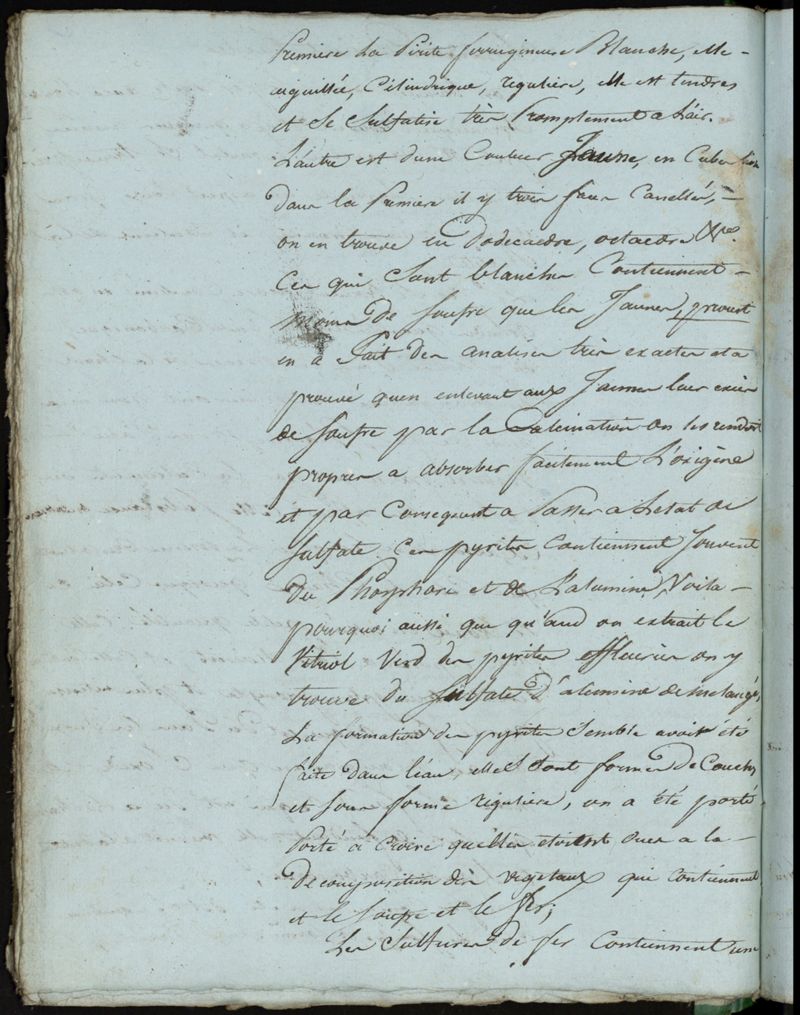 Premiere La Pirite ferrugineuse Blanche, elle
aiguillée, Cilindrique, reguliere, elle est tendres
et Se Sulfatise très Promptement a L'air.
L'autre est d'une Couleur Jaune, en Cubes
dans la Premiere il y trois faces Canellés,
on en trouve en Dodecaedre, octaedre &ca.
Ces qui Sont blanches Contiennent
moins De Soufre que les Jaunes, proust
en a fait des analises très exactes et a
prouvé qu'en enlevant aux Jaunes leur excès
de Soufre par la Calcination on les rendoit
propres a absorber facilement L'oxigène
et par Consequent a Passer a L'etat de
Sulfate, Ces pyrites Contiennent Souvent
du Phosphore et de L'alumine, Voila
pourquoi aussi que qu'and on extrait le
Vitriol Verd des pyrites effleuries on y
trouve du Sulfate D'alumine de melangé,
La formation des pyrites Semble avoir été
faite dans l'eau, elles Sont formés de Couches
et sous forme reguliere, on a été porté
Porté a Croire quelles etoient dues a la
Decomposition des vegetaux qui contiennent
et le Soufre et le fer;
Les Sulfures de fer Contiennent une